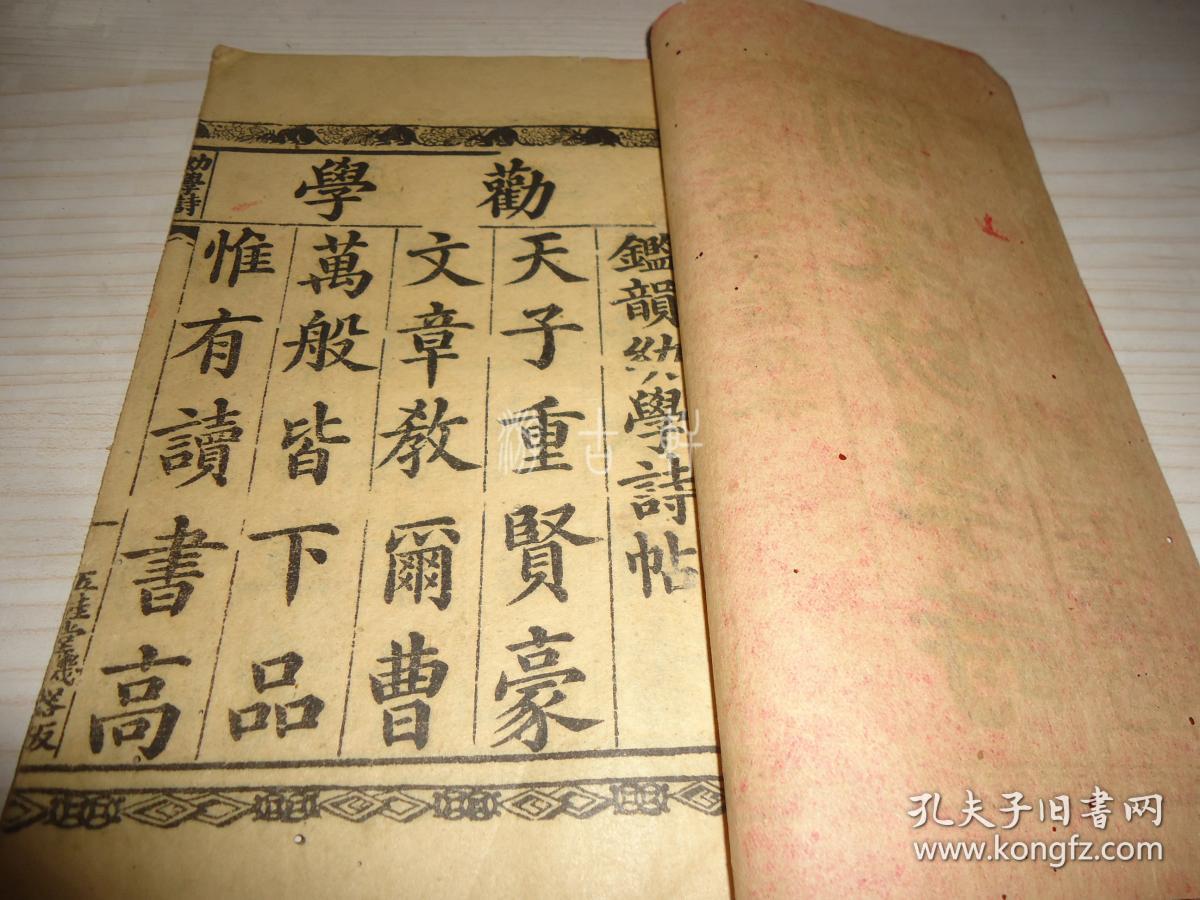 勸學
鑑韻幼學詩帖
天子重賢豪
文章教爾曹
萬般皆下品
惟有讀書高
勸學詩
一
古軒
孔夫子旧书网
www.kongfz.com